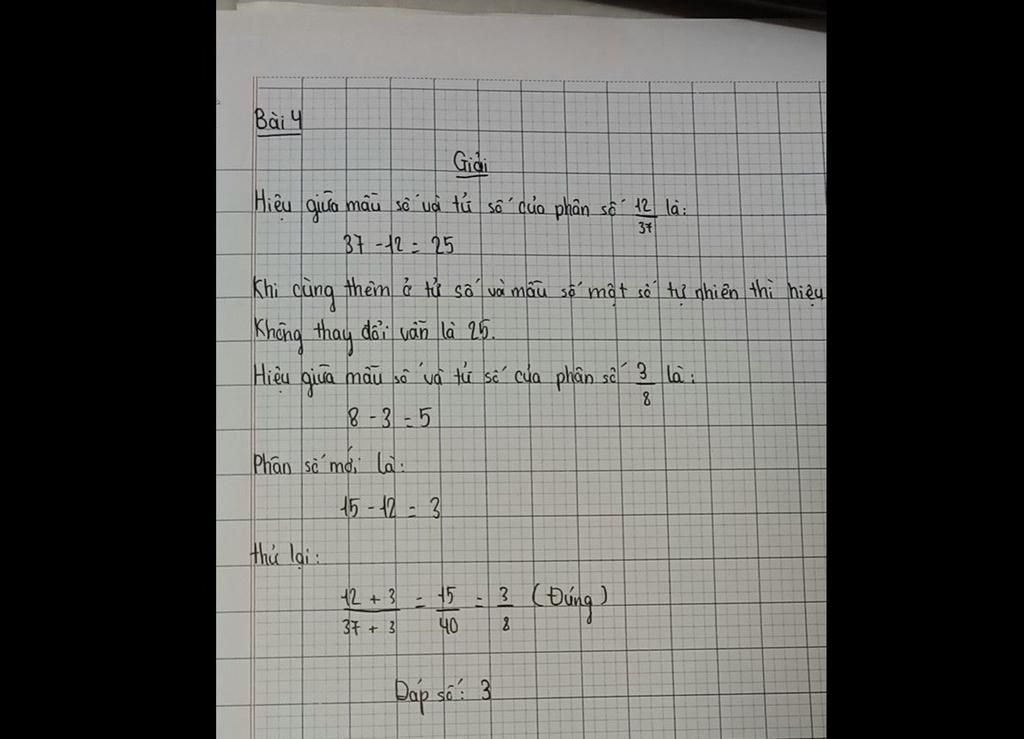 Bài 4
Giải
Hiệu giữa mẫu số và tử số của phân số 12/37 là:
37 - 12 = 25
Khi cùng thêm ở tử số và mẫu số một số tự nhiên thì hiệu
không thay đổi vẫn là 25.
Hiệu giữa mẫu số và tử số của phân số 3/8 là:
8 - 3 = 5
Phân số mới là:
15 - 12 = 3
thử lại:
12 + 3 / 37 + 3 = 15/40 = 3/8 (Đúng)
Đáp số: 3